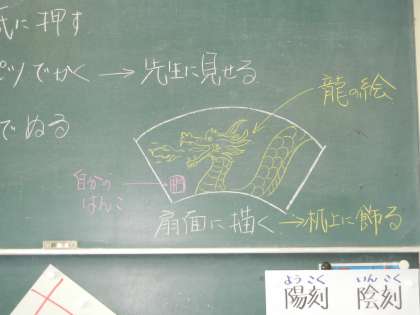 紙に押す
でかく → 先生に見せる
でぬる
龍の絵
自分の
はんこ
扇面に描く → 机上に飾る
ようこく
陽刻
いんこく
陰刻